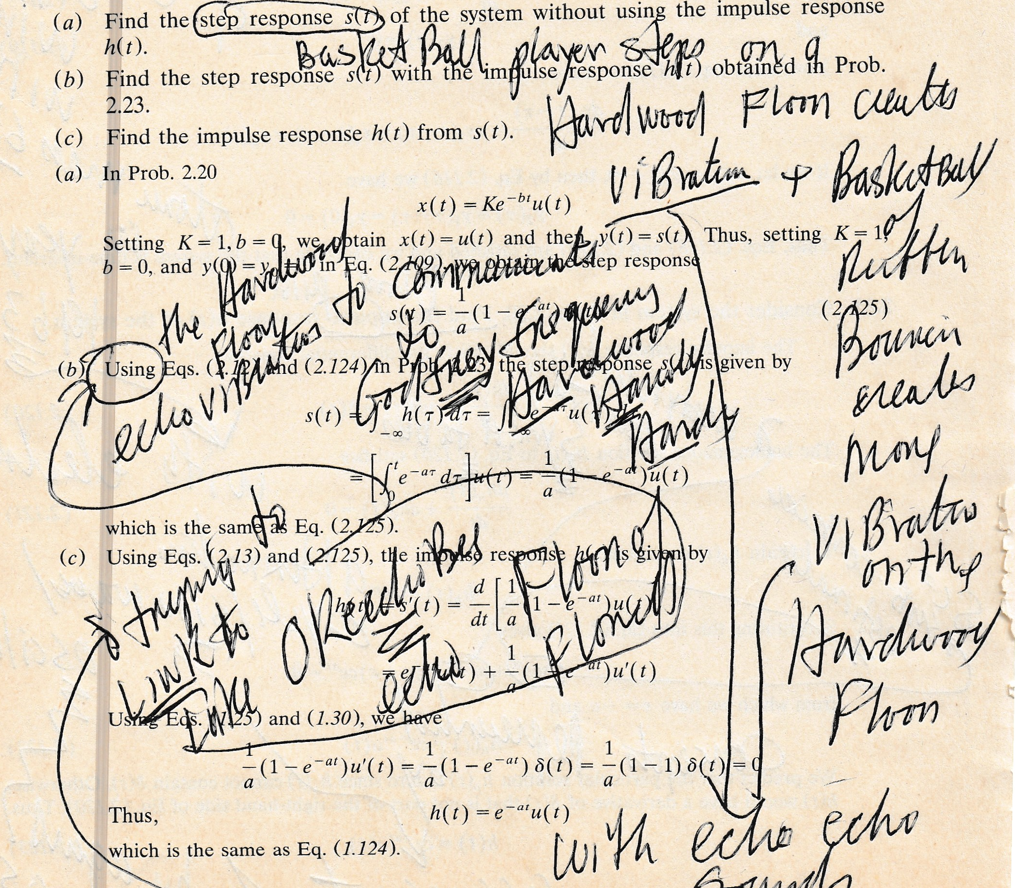 (a) Find the step response s(t) of the system without using the impulse response
h(t).
BasketBall player steps on a
(b) Find the step response s(t) with the impulse response h(t) obtained in Prob.
2.23.
Hardwood Floor creates
(c) Find the impulse response h(t) from s(t).
(a) In Prob. 2.20
ViBration + BasketBall
x(t) = Ke^{-bt}u(t)
of
Setting K = 1, b = 0, we obtain x(t) = u(t) and then y(t) = s(t). Thus, setting K = 1,
b = 0, and y(0) = y in Eq. (2.109), we obtain the step response
Rubber
the Hardwood
Floor to communicate
s(t) = 1/a (1 - e^{-at})
(2.125)
Bouncin
echo ViBrations
to
(b) Using Eqs. (2.12 and (2.124) in Prob. 2.23, the step response s(t) is given by
Hardwood
creates
s(t) = ∫_{-∞} h(τ) dτ = ∫_{-∞} e^{-aτ}u(τ)
Hardy
more
= [∫_0^t e^{-aτ} dτ] u(t) = 1/a (1 - e^{-at})u(t)
ViBratio
which is the same as Eq. (2.125).
to
on the
(c) Using Eqs. (2.13) and (2.125), the impulse response h(t) is given by
trying
h(t) = s'(t) = d/dt [1/a (1 - e^{-at})u(t)]
Hardwood
Link to
Floor of
echo
+ 1/a (1 - e^{-at})u'(t)
Floor
Using Eqs. (1.25) and (1.30), we have
1/a (1 - e^{-at})u'(t) = 1/a (1 - e^{-at}) δ(t) = 1/a (1 - 1) δ(t) = 0
Thus, h(t) = e^{-at}u(t)
with echo echo
which is the same as Eq. (1.124).
sounds